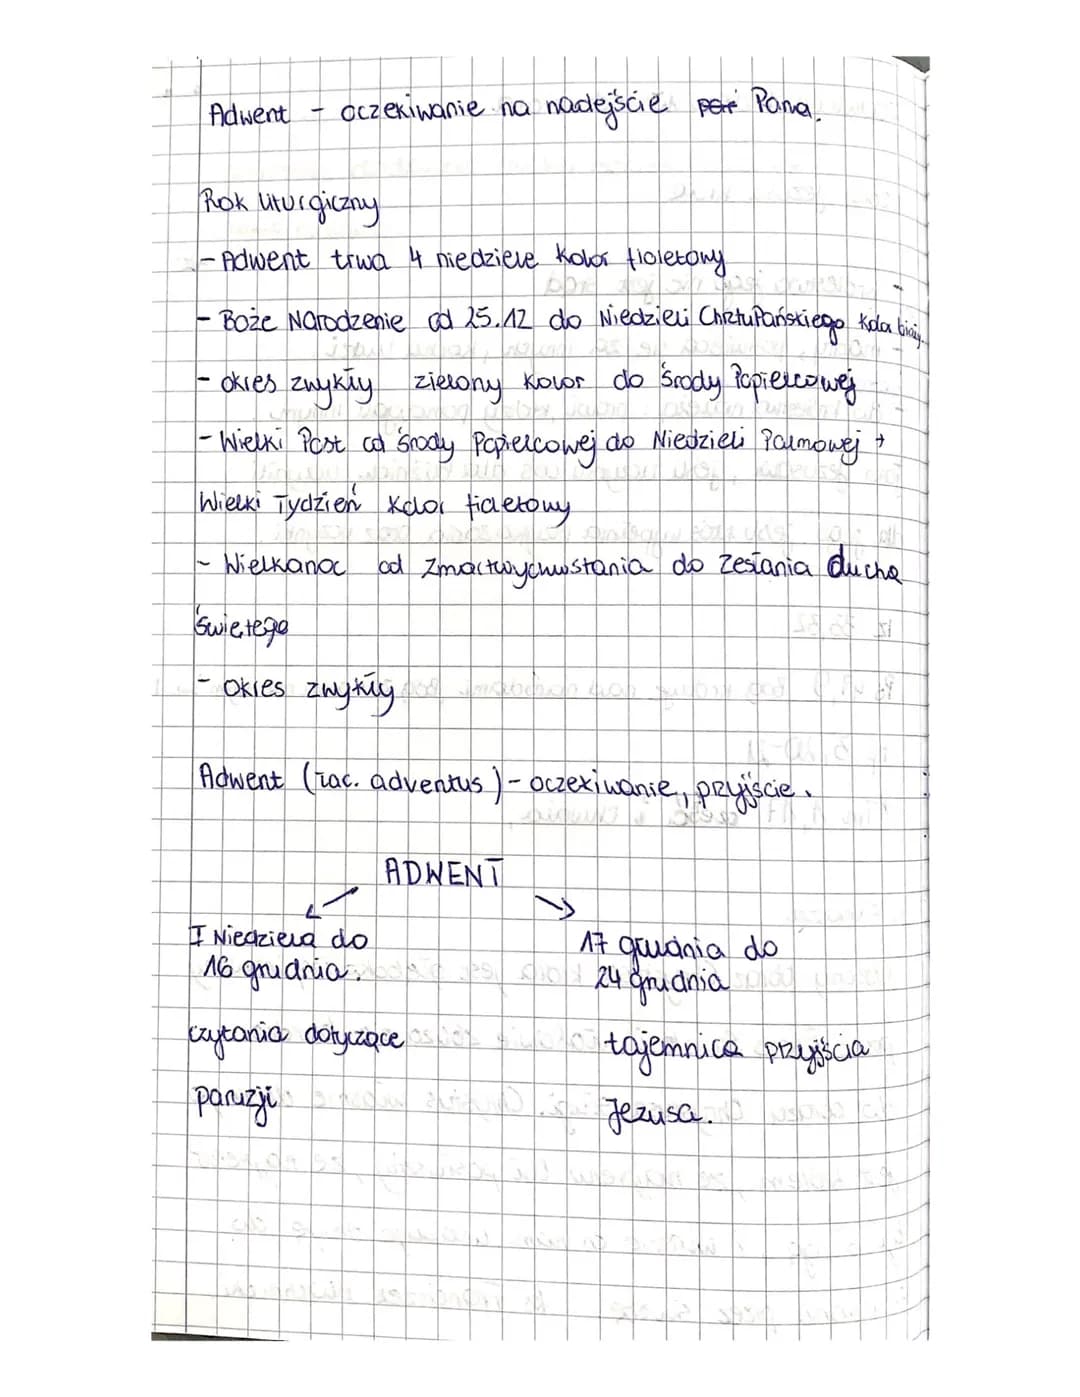 Adwent - oczekiwanie na nadejście Pana.
Rok liturgiczny
- Adwent trwa 4 niedziele kolor fioletowy
- Boże Narodzenie od 25.12 do Niedzieli Chrztu Pańskiego kolor biały.
- okres zwykły zielony kolor do środy Popielcowej
- Wielki Post od środy Popielcowej do Niedzieli Palmowej +
Wielki Tydzień kolor fioletowy
- Wielkanoc od zmartwychwstania do Zesłania ducha
świętego
- okres zwykły
Adwent (łac. adventus) - oczekiwanie, przyjście.
ADWENT
I Niedziela do 17 grudnia do
16 grudnia. 24 grudnia
czytania dotyczące tajemnica przyjścia
paruzji Jezusa.